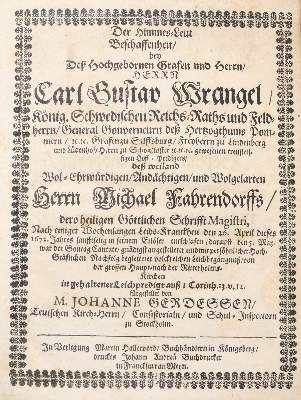 Der Himmels-Leut
Beschaffenheit /
bey
Deß Hochgebornen Grafen und Herrn /
HERRN
Carl Gustav Wrangel /
König. Schwedischen Reichs-Raths und Feld-
herrn / General Gouverneurn deß Hertzogthums Pom-
mern / Grafen zu Saltzburg / Freyherrn zu Lindenberg
gewesenen
Hoff-Predigers /
deß weiland
Wol-Ehrwürdigen / Andächtigen / und Wolgelarten
Herrn Michael Fahrendorffs /
dero heiligen Göttlichen Schrifft Magistri,
Nach einiger Wochenlangen Leibs-Kranckheit den 26. April dieses
1672. Jahres in seinem Erlöser darauff den 7. May
war der Sontag Cantate
Gräflichen Nachfolg
der grossen Haupt- nach der Ritterholms-
Kirchen
in gehaltener Leichpredigt auß 1 Corinth. 15. v. 12.
fürgestellet von
M. JOHANNE GERDESSEN,
Teutschen Kirch-Herrn / Consistorialn / und Schul-Inspectorn
zu Stockholm.
In Verlegung Martin Hallervord / Buchhändlern in Königsberg /
druckts Johann Andreä / Buchdrucker
in Franckfurt am Mayn.